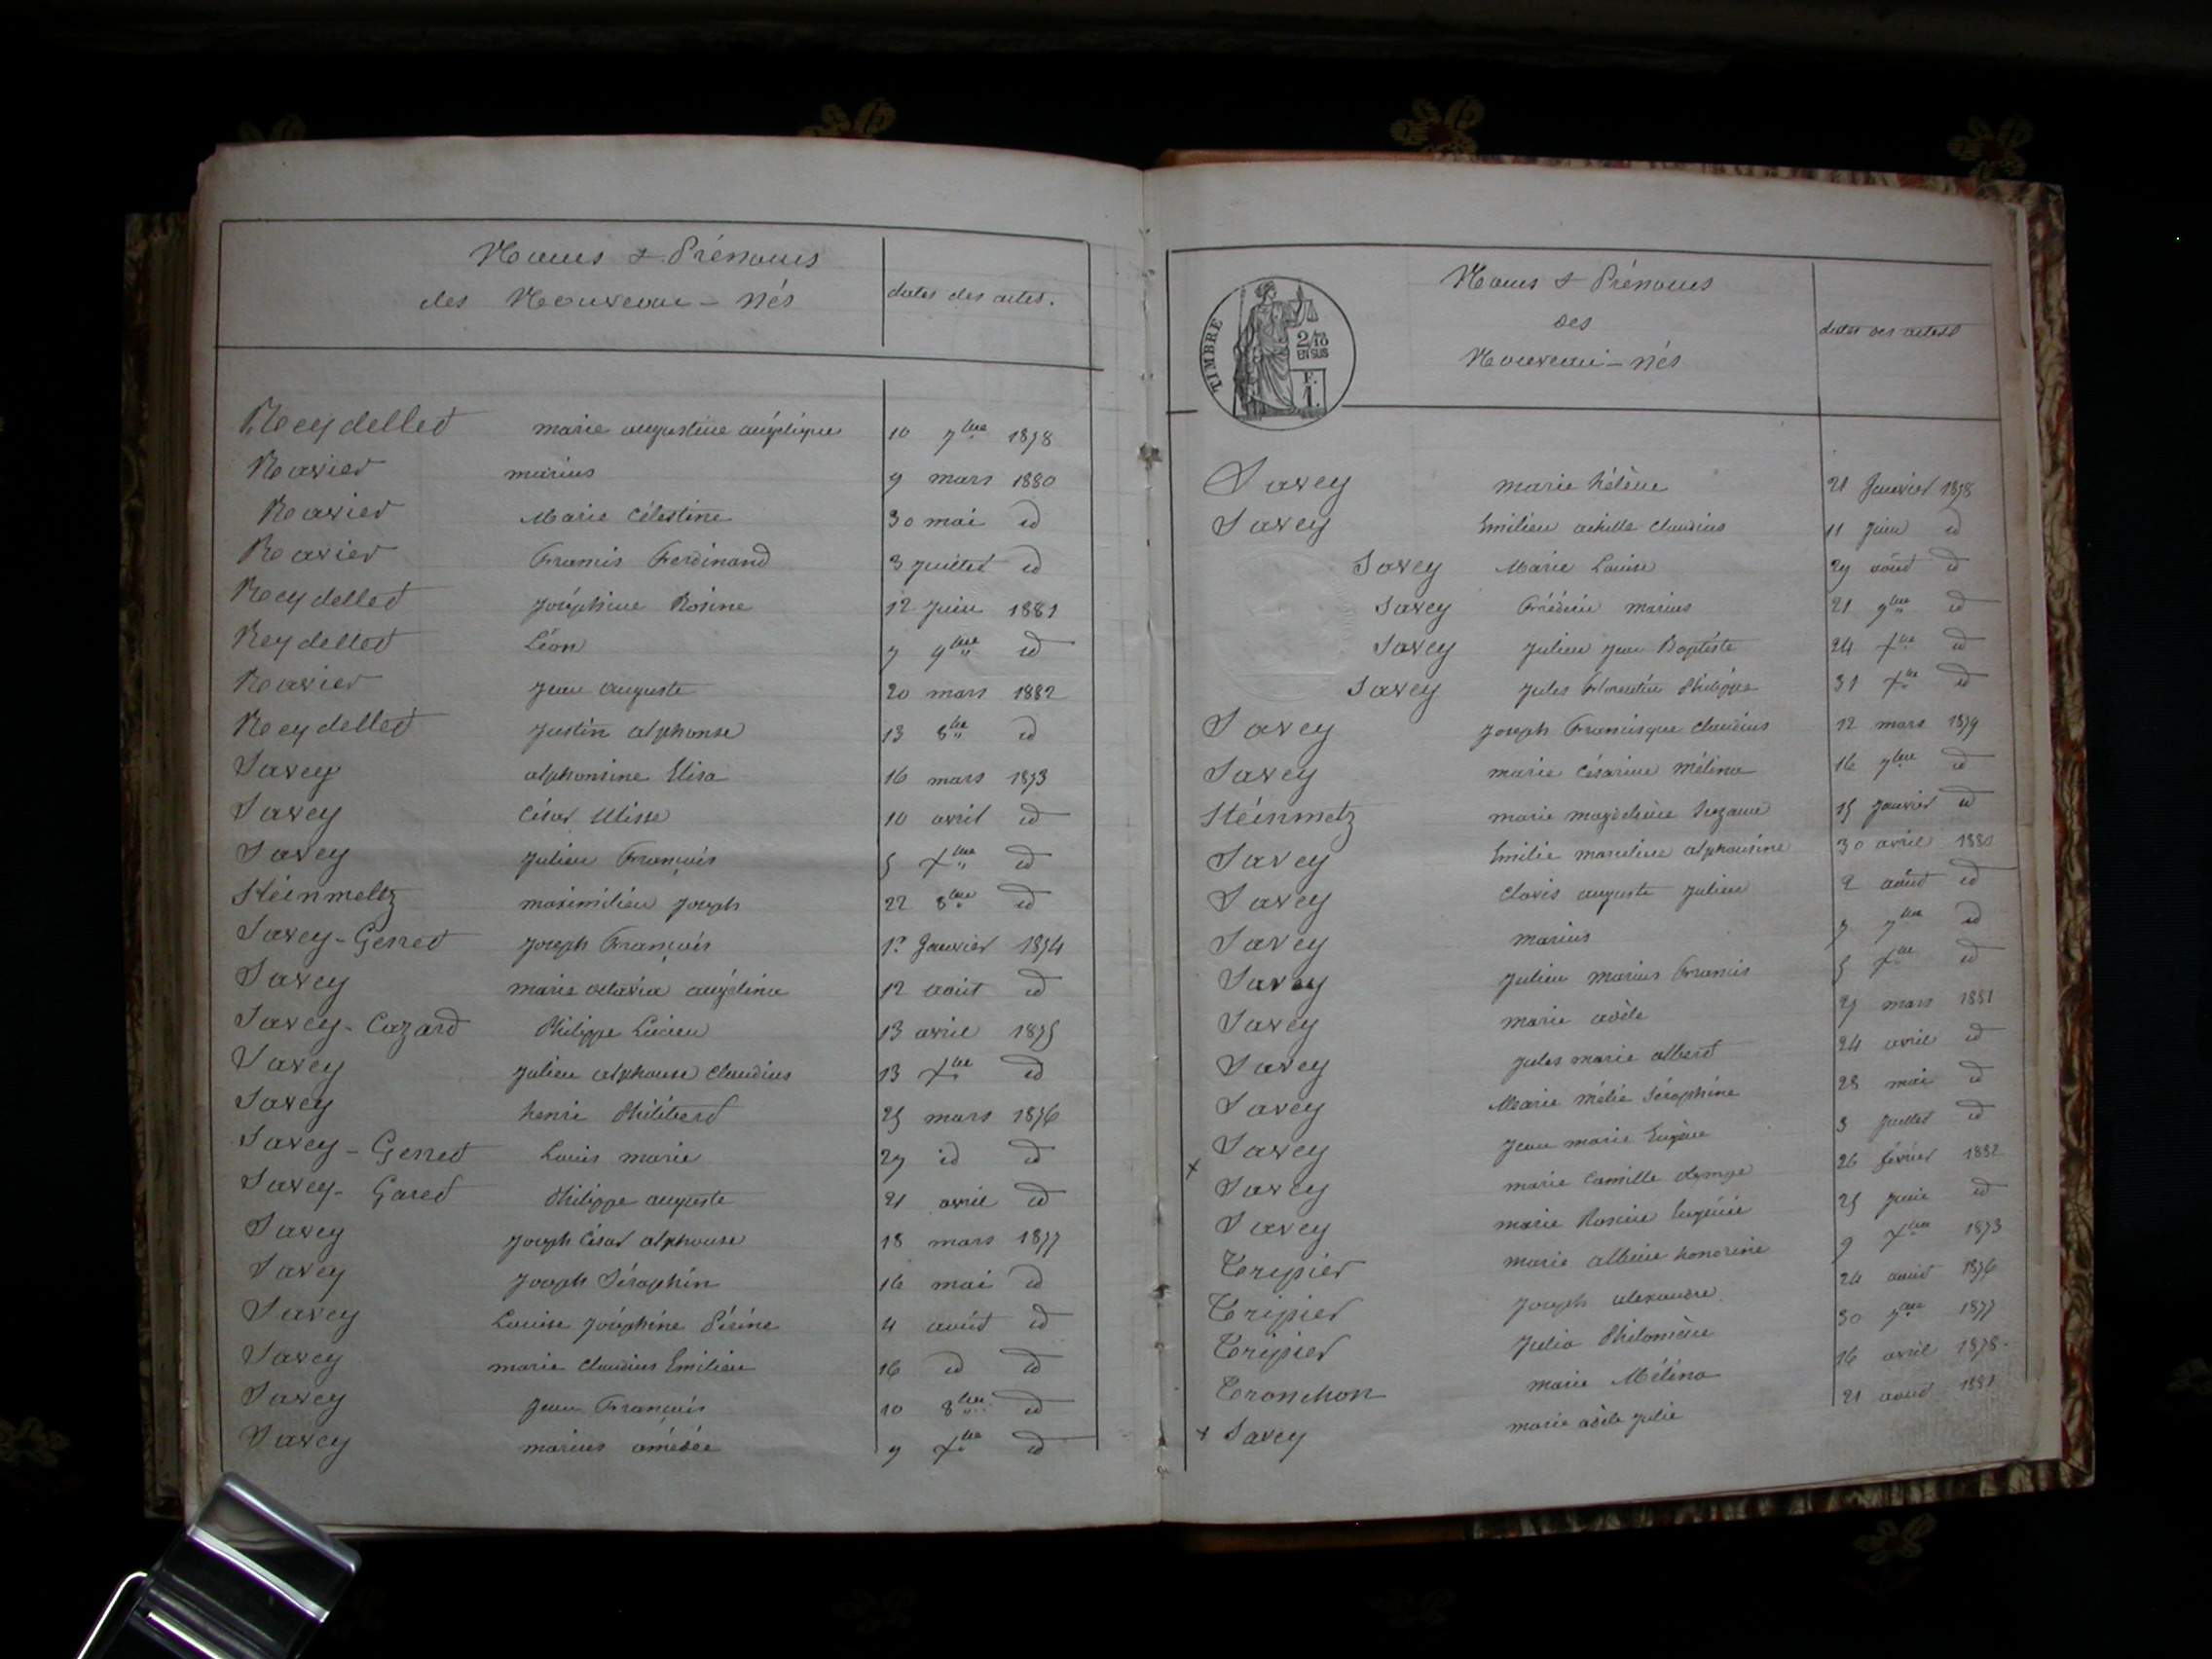 Noms & Prénoms
des Nouveau-nés
dates des actes.
Reydellet marie augustine angélique 10 7bre 1878
Ravier marius 9 mars 1880
Ravier Marie Célestine 30 mai id
Ravier Francis Ferdinand 3 juillet id
Reydellet Joséphine Rosine 12 juin 1881
Reydellet Léon 7 9bre id
Ravier Jean auguste 20 mars 1882
Reydellet Justin alphonse 13 8bre id
Savey alphonsine Elisa 16 mars 1873
Savey César Ulisse 10 avril id
Savey Julien François 5 Xbre id
Steinmeltz maximilien Joseph 22 8bre id
Savey-Genet Joseph François 1er Janvier 1874
Savey marie octavia angélina 12 août id
Savey-Cazard Philippe Lucien 13 avril 1875
Savey Julien alphonse Claudius 13 Xbre id
Savey henri Philibert 25 mars 1876
Savey-Genet Louis marie 27 id id
Savey- Gared Philippe auguste 21 avril id
Savey Joseph César alphonse 18 mars 1877
Savey Joseph Séraphin 16 mai id
Savey Louise Joséphine Périne 4 août id
Savey marie Claudius Emilien 16 id id
Savey Jean François 10 8bre id
Savey marius amédée 9 Xbre id
TIMBRE
2/10
EN SUS
F.
1.
Noms & Prénoms
des
Nouveau-nés
dates des actes
Savey marie hélène 21 Janvier 1878
Savey Emilien achille Claudius 11 Juin id
Savey Marie Louise 29 août id
Savey Frédéric marius 21 9bre id
Savey Julien Jean Baptiste 24 Xbre id
Savey Jules Florentin Philippe 31 Xbre id
Savey Joseph Francisque Claudius 12 mars 1879
Savey marie Césarine Mélina 16 7bre id
Steinmetz marie magdeleine Suzanne 15 Janvier id
Savey Emilie marceline alphonsine 30 avril 1880
Savey Clovis auguste Julien 2 août id
Savey marius 7 7bre id
Savey Julien marius Francis 5 Xbre id
Savey marie adèle 27 mars 1881
Savey Jules marie albert 24 avril id
Savey Marie mélie Séraphine 28 mai id
Savey Jean marie Eugène 3 Juillet id
x Savey marie Camille 26 février 1882
Savey marie Rosine Eugénie 25 Juin id
Trepier marie albine honorine 9 Xbre 1873
Tripier Joseph alexandre 24 août 1876
Tripier Julia Philomène 30 7bre 1877
Tronchon marie Mélina 16 avril 1878-
x Savey marie adèle Julie 21 août 1881